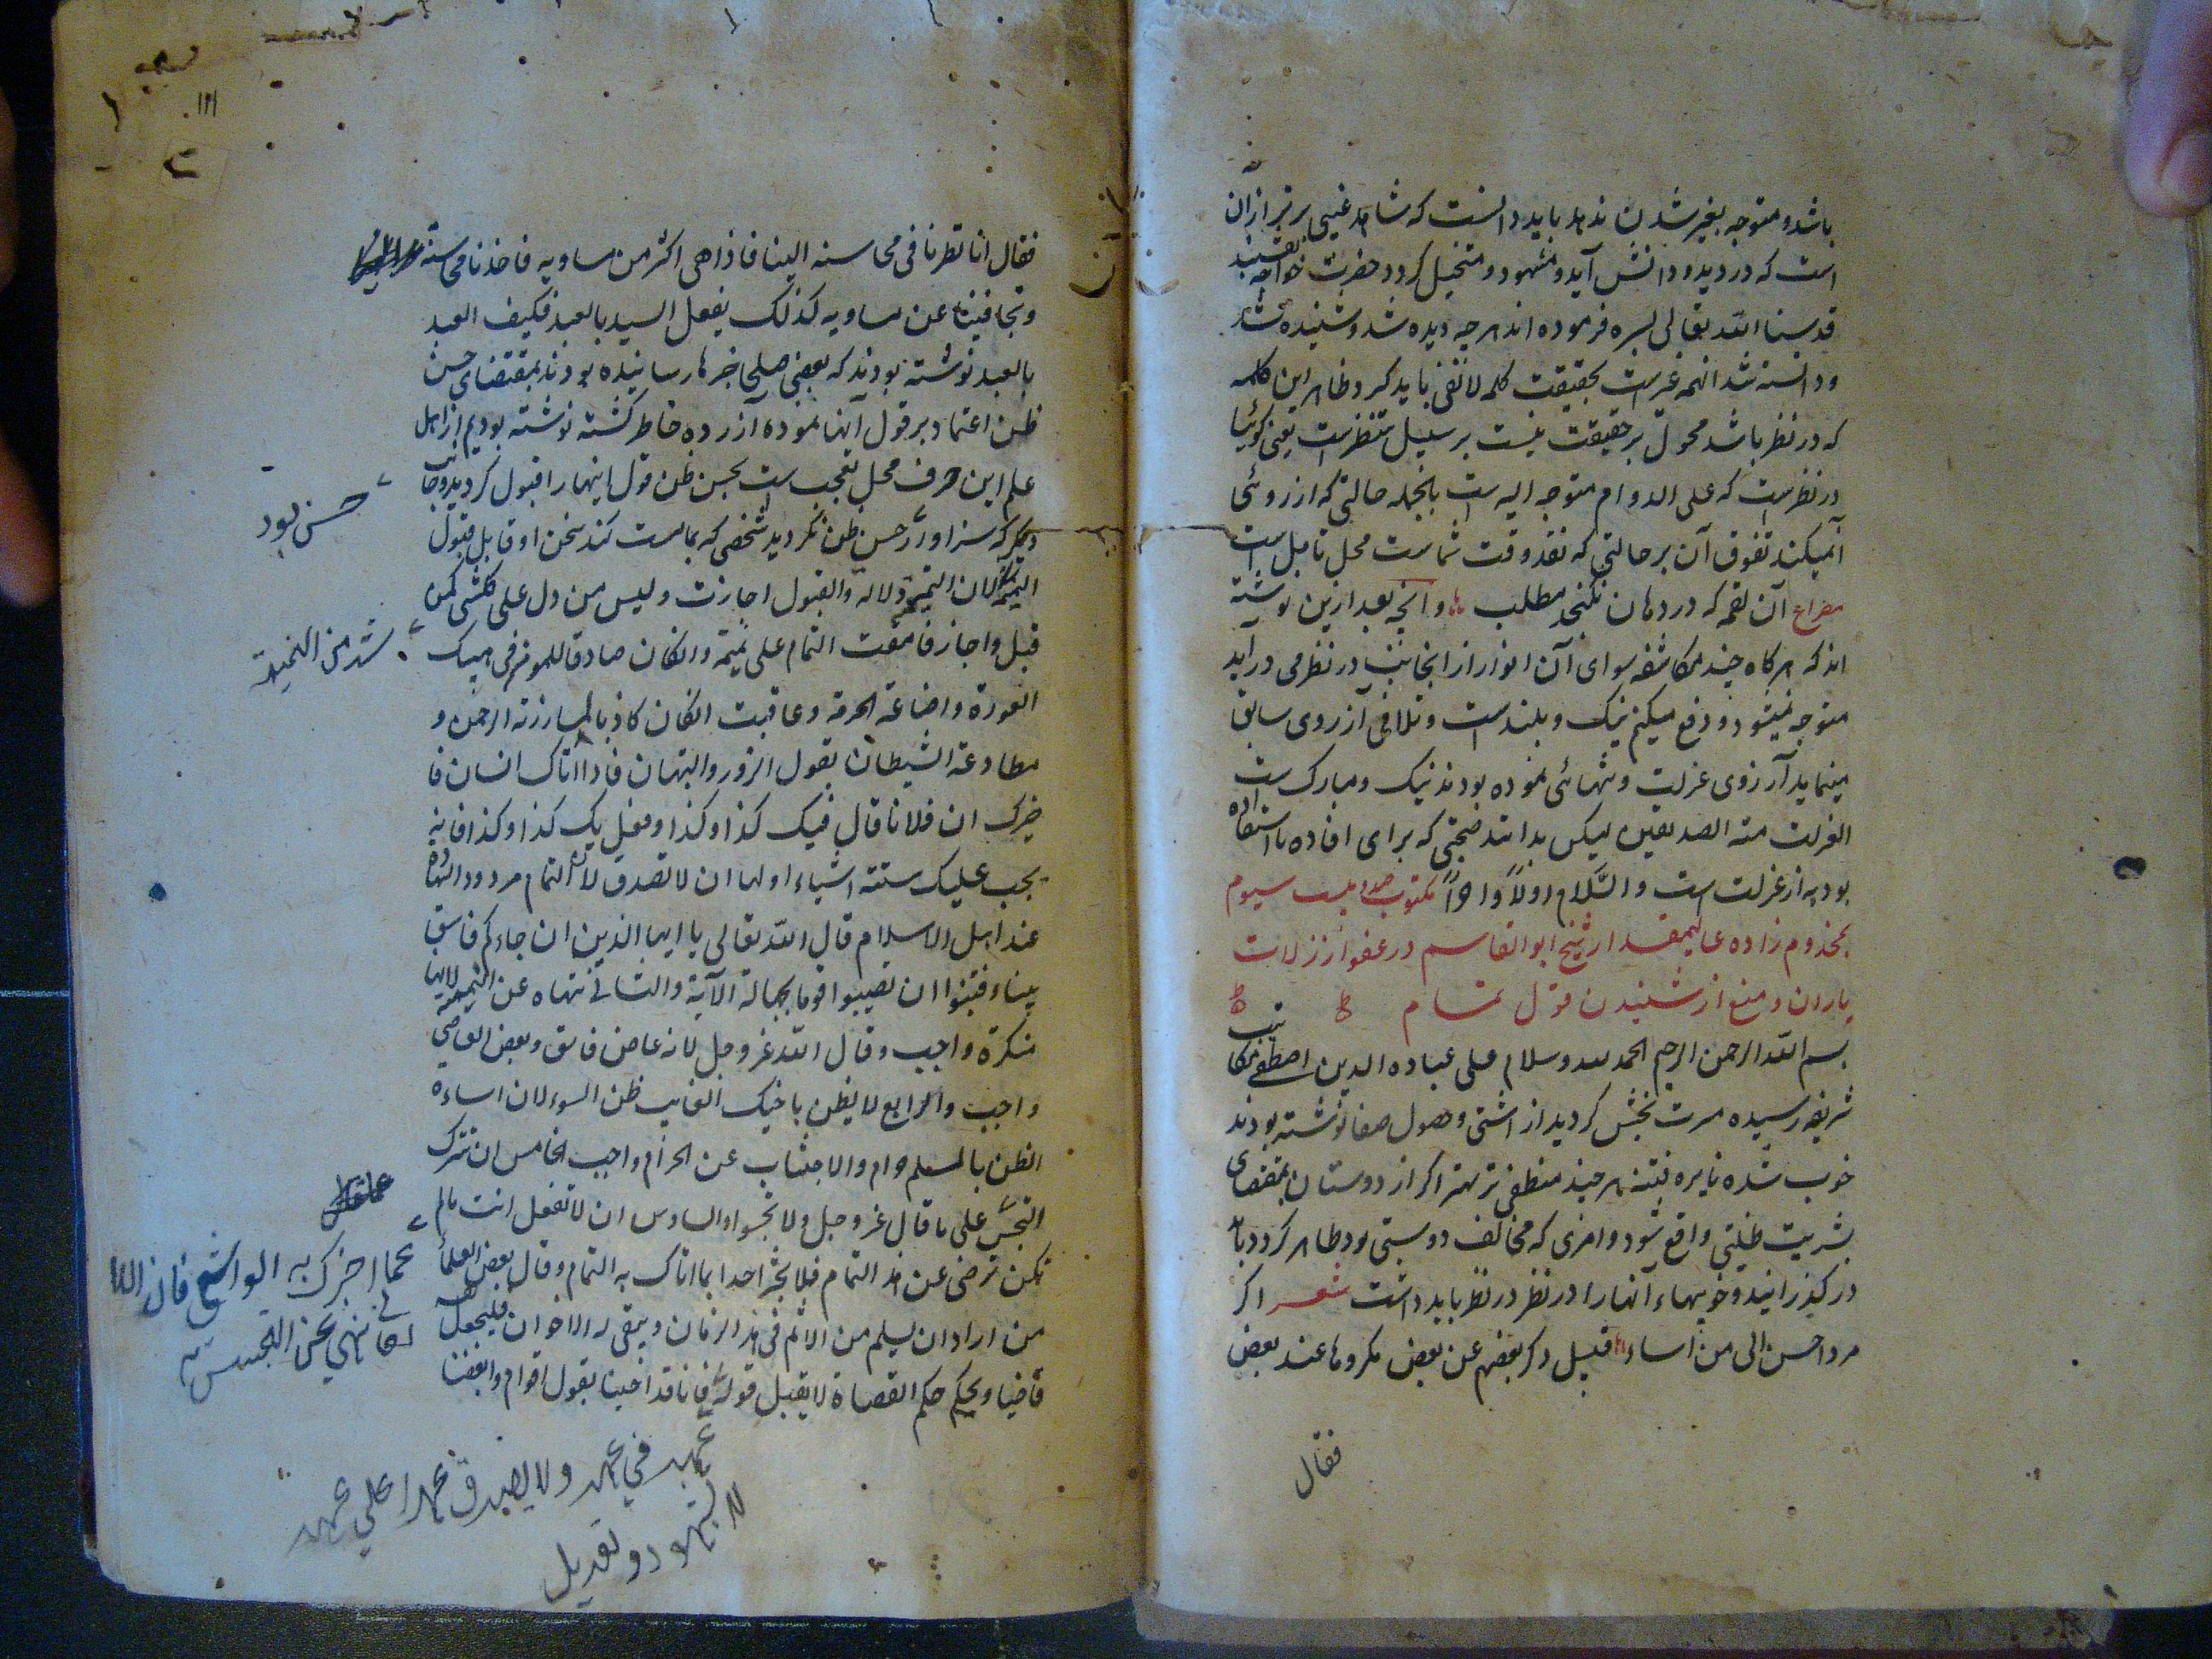 باشد و متوجه بغیر شدن ندهد باید دانست که مشاهد غیبی برتر از آن
است که در دید و دانش آید و مشهود و متخیل گردد حضرت خواجه نقشبند
قدسنا الله تعالی بسره فرموده اند هرچه دیده شد و شنیده شد
و دانسته شد آنهمه غیرست بحقیقت کلمه لا نفی باید کرد و ظاهر این کلمه
که در نظر باشد محمول بر حقیقت نیست بر سبیل تنظرست یعنی گوئیا
در نظرست که علی الدوام متوجه الیه است بالجمله حالتی که آرزوئی
آنمیکند تفوق آن بر حالتی که نقد وقت شماست محل تامل است
مصراع آن لقمه که در دهان نگنجد مطلب و آنچه بعد ازین نوشته
اند که هرگاه چند مکاشفه سوای آن انوار از آنجانب در نظر می درآید
متوجه نمیشود و دفع میکنم نیک و بلندست و تلافی از روی سابق
مینماید آرزوی عزلت و تنهائی نموده بودند نیک و مبارک ست
العزلت منة الصدیقین لیکن بدانند صحبتی که برای افاده یا استفاده
بود به از عزلت ست والسّلام اولاً و آخراً مکتوب صد و بیست سیوم
بمخدوم زاده عالیمقدار شیخ ابو القاسم در عفو از زلات
یاران و منع از شنیدن قول نمام
بسم الله الرحمن الرحیم الحمد لله وسلام علی عباده الذین اصطفی مکاتیب
شریفه رسیده مسرت بخش گردید از آشتی و حصول صفا نوشته بودند
خوب شده نایره فتنه هر چند منطفی تر بهتر اگر از دوستان بمقتضای
بشریت ظلیتی واقع شود و امری که مخالف دوستی بود ظاهر گردد باید
در گذرانید و خوبیهاء آنها را در نظر در نظر باید داشت شعر اگر
مردا حسن الی من اساء قیل ذکر بعضهم عن بعض مکروها عند بعض
فقال
فقال انا نظرنا فی محاسنه الینا فاذا هی اکثر من مساویه فاخذنا محاسنه
وتجافینا عن مساویه کذلک یفعل السید بالعبد فکیف العبد
بالعبد نوشته بودند که بعضی صلحا خبرها رسانیده بودند بمقتضای حسن
ظن اعتماد بر قول آنها نموده آزرده خاطر گشته نوشته بودیم از اهل
علم این حرف محل تعجب ست بحسن ظن قول اینهارا قبول کردید و جانب
دیگر که سزاوار حسن ظن نکردید شخصی که نمامست کند سخن او قابل قبول
حسن بود
النمیمة لان النمیمة دلالة والقبول اجازت ولیس من دل علی کلشی کمن
قبل واجاز فامقت النمام علی نمیمته وانکان صادقا للموثر فی هتک
شر من النمیمة
العورة واضاعة الحرمة وعاقبت انکان کاذبا لمبارزة الرحمن و
مطاوعة الشیطان بقول الزور والبهتان فاذا اتاک انسان فا
خبرک ان فلانا قال فیک کذا وکذا وفعل بک کذا وکذا فانه
یجب علیک ستة اشیاء اولها ان لا تصدق لان النمام مردود الشهادة
عند اهل الاسلام قال الله تعالی یا ایها الذین ان جاءکم فاسق
بنباء فتبینوا ان تصیبوا قوما بجهالة الآیة والثانی تنهاه عن النمیمة لانها
منکرة واجب وقال الله عز وجل لانه عاص فاسق وبعض العاصی
واجب والرابع لا یظن باخیک الغایب ظن السوء لان اساءة
الظن بالمسلم حرام والاجتناب عن الحرام واجب الخامس ان تترک
التجسّس علی ما قال عز وجل ولا تجسسوا والسادس ان لا تفعل انت ما لم
تکن ترضی عن هذا النمام فلا تخبر احدا بما اتاک به النمام وقال بعض العلماء
عما اخبرک به الواشی فان الله
تعالی نهی عن التجسس
من اراد ان یسلم من الاثم فی هذا الزمان ویبقی له الاخوان فلیجعل نفسه
قاضیا ویحکم حکم القضاة لا یقبل قولة فانا قد احببنا بقول اقوام وابغضنا
عهد فی عهد ولا یصدق عهدا علی عهد
لا بشهود و تعدیل